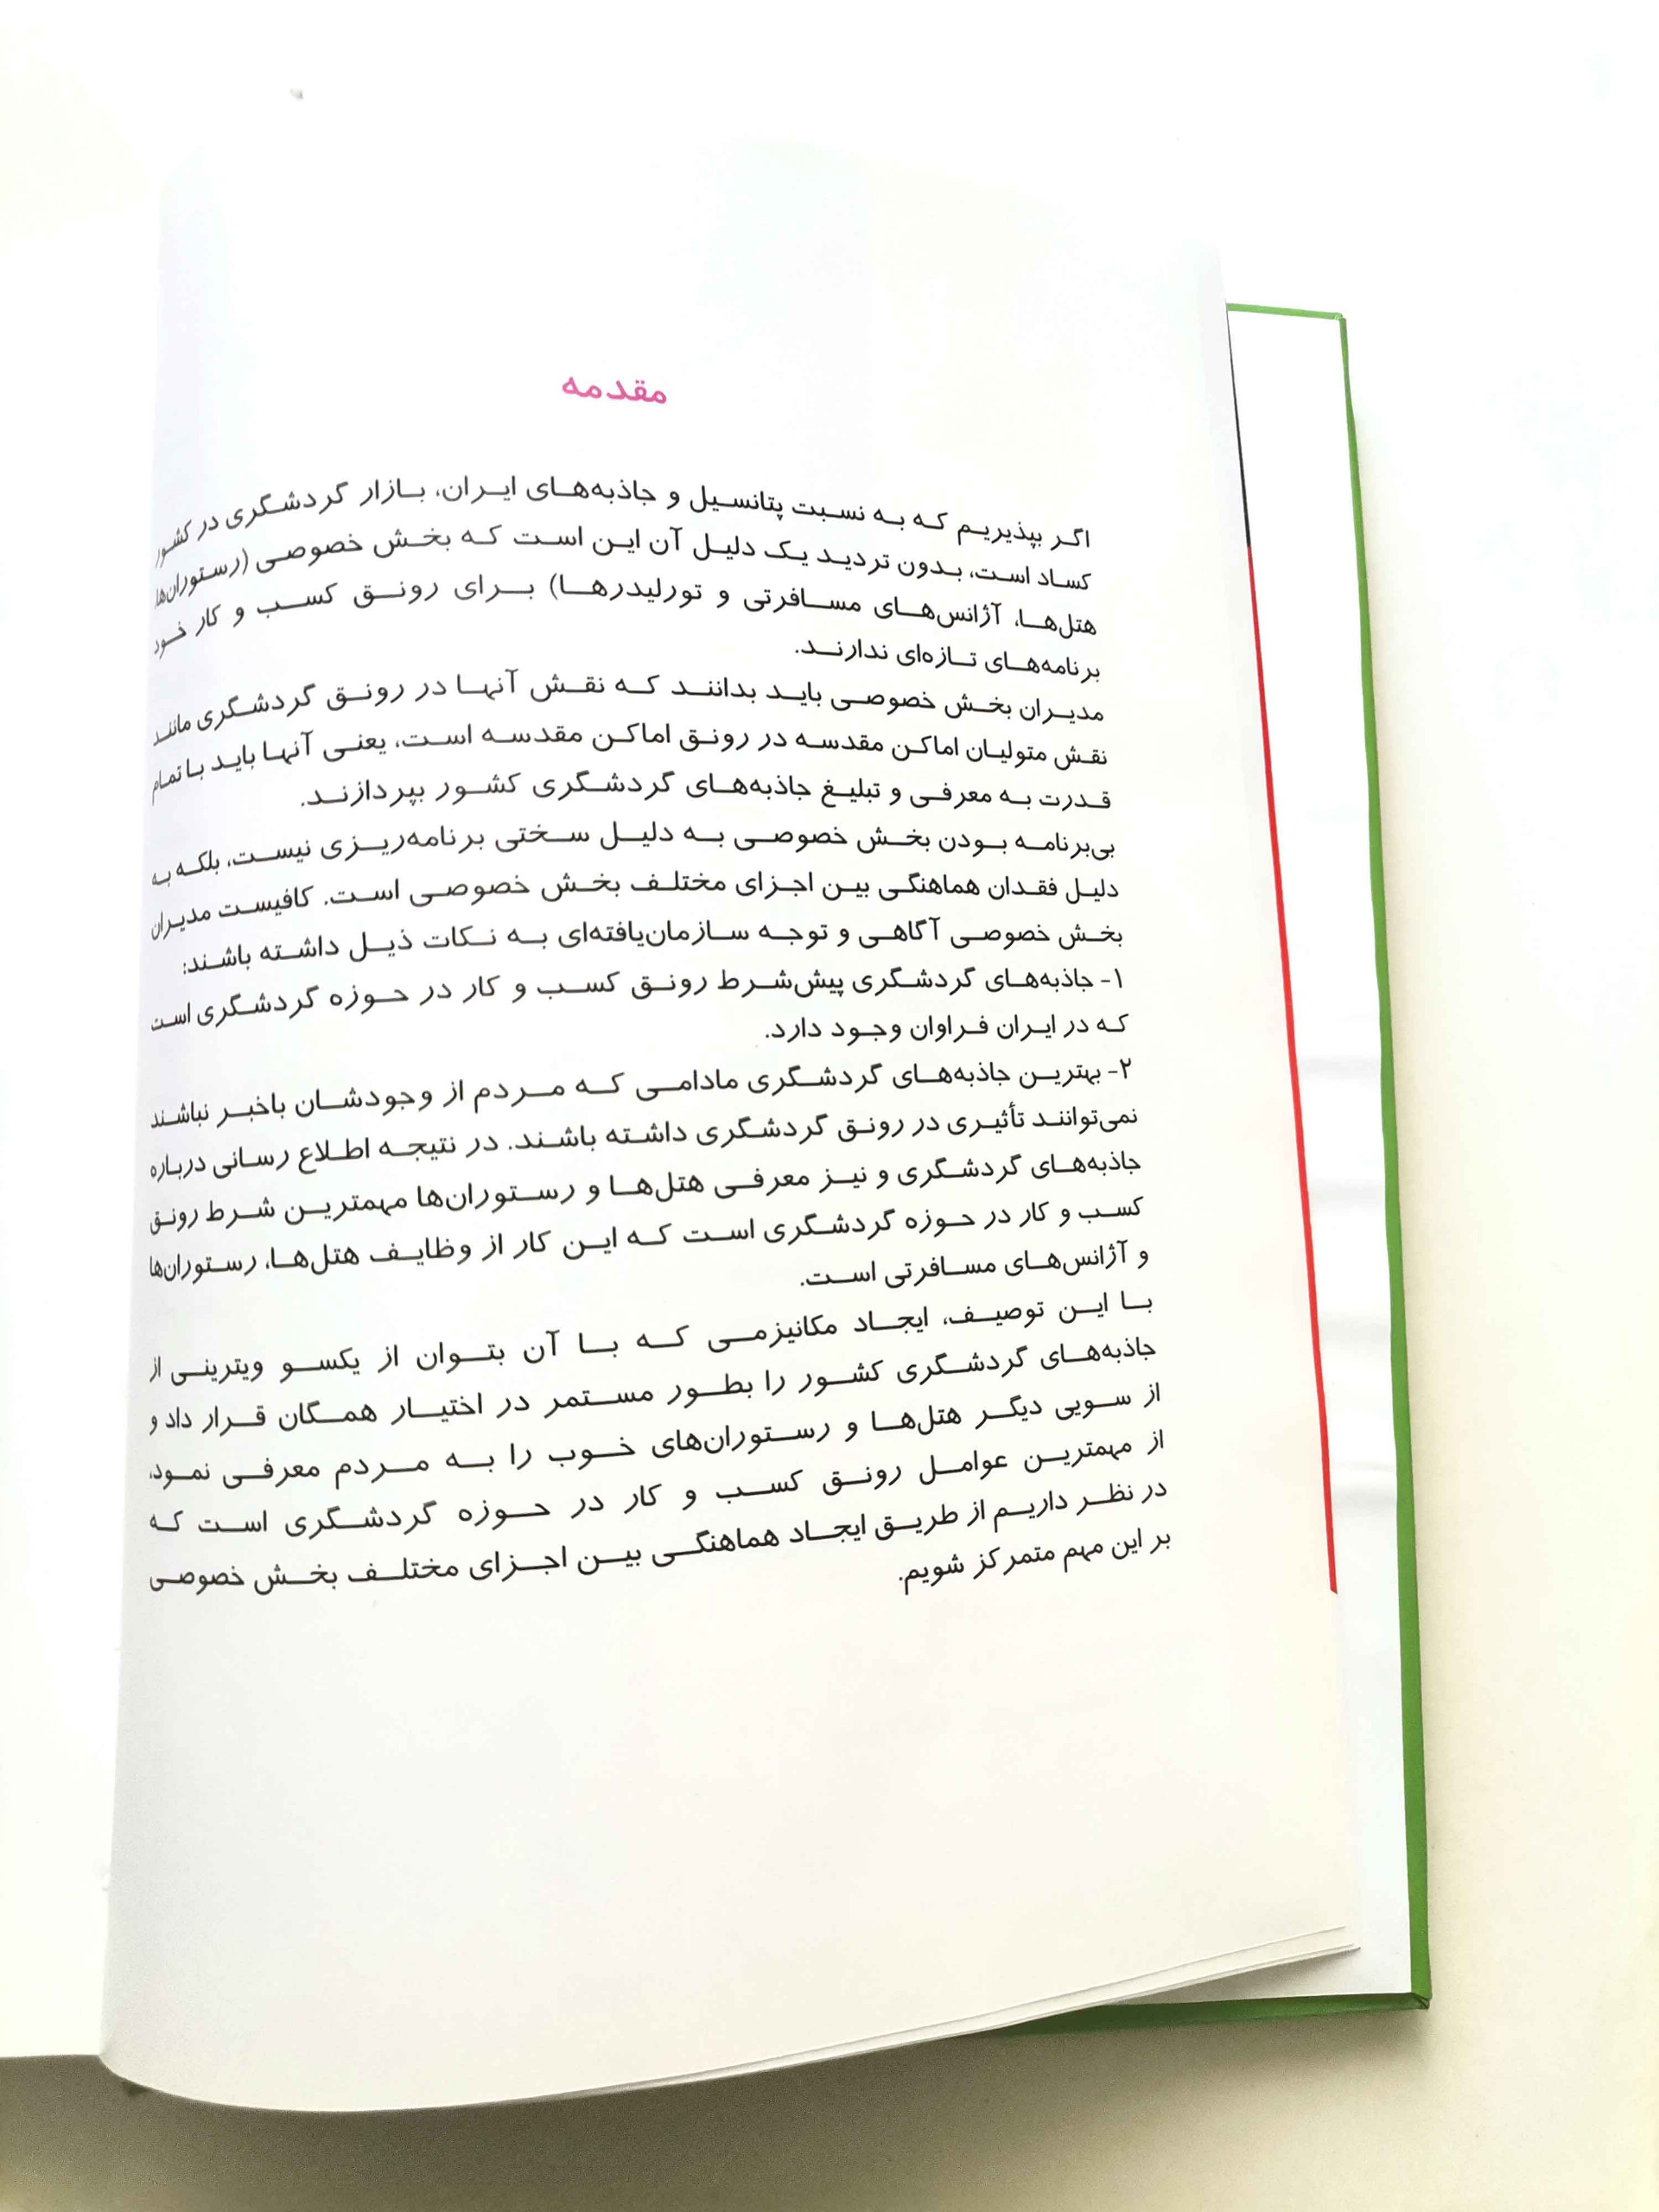 مقدمه
اگر بپذیریم که به نسبت پتانسیل و جاذبه‌های ایران، بازار گردشگری در کشور
کساد است، بدون تردید یک دلیل آن این است که بخش خصوصی (رستوران‌ها
هتل‌ها، آژانس‌های مسافرتی و تورلیدرها) برای رونق کسب و کار خود
برنامه‌های تازه‌ای ندارند.
مدیران بخش خصوصی باید بدانند که نقش آنها در رونق گردشگری مانند
نقش متولیان اماکن مقدسه در رونق اماکن مقدسه است، یعنی آنها باید با تمام
قدرت به معرفی و تبلیغ جاذبه‌های گردشگری کشور بپردازند.
بی‌برنامه بودن بخش خصوصی به دلیل سختی برنامه‌ریزی نیست، بلکه به
دلیل فقدان هماهنگی بین اجزای مختلف بخش خصوصی است. کافیست مدیران
بخش خصوصی آگاهی و توجه سازمان‌یافته‌ای به نکات ذیل داشته باشند:
۱- جاذبه‌های گردشگری پیش‌شرط رونق کسب و کار در حوزه گردشگری است
که در ایران فراوان وجود دارد.
۲- بهترین جاذبه‌های گردشگری مادامی که مردم از وجودشان باخبر نباشند
نمی‌توانند تأثیری در رونق گردشگری داشته باشند. در نتیجه اطلاع رسانی درباره
جاذبه‌های گردشگری و نیز معرفی هتل‌ها و رستوران‌ها مهمترین شرط رونق
کسب و کار در حوزه گردشگری است که این کار از وظایف هتل‌ها، رستوران‌ها
و آژانس‌های مسافرتی است.
با این توصیف، ایجاد مکانیزمی که با آن بتوان از یکسو ویترینی از
جاذبه‌های گردشگری کشور را بطور مستمر در اختیار همگان قرار داد و
از سویی دیگر هتل‌ها و رستوران‌های خوب را به مردم معرفی نمود،
از مهمترین عوامل رونق کسب و کار در حوزه گردشگری است که
در نظر داریم از طریق ایجاد هماهنگی بین اجزای مختلف بخش خصوصی
بر این مهم متمرکز شویم.